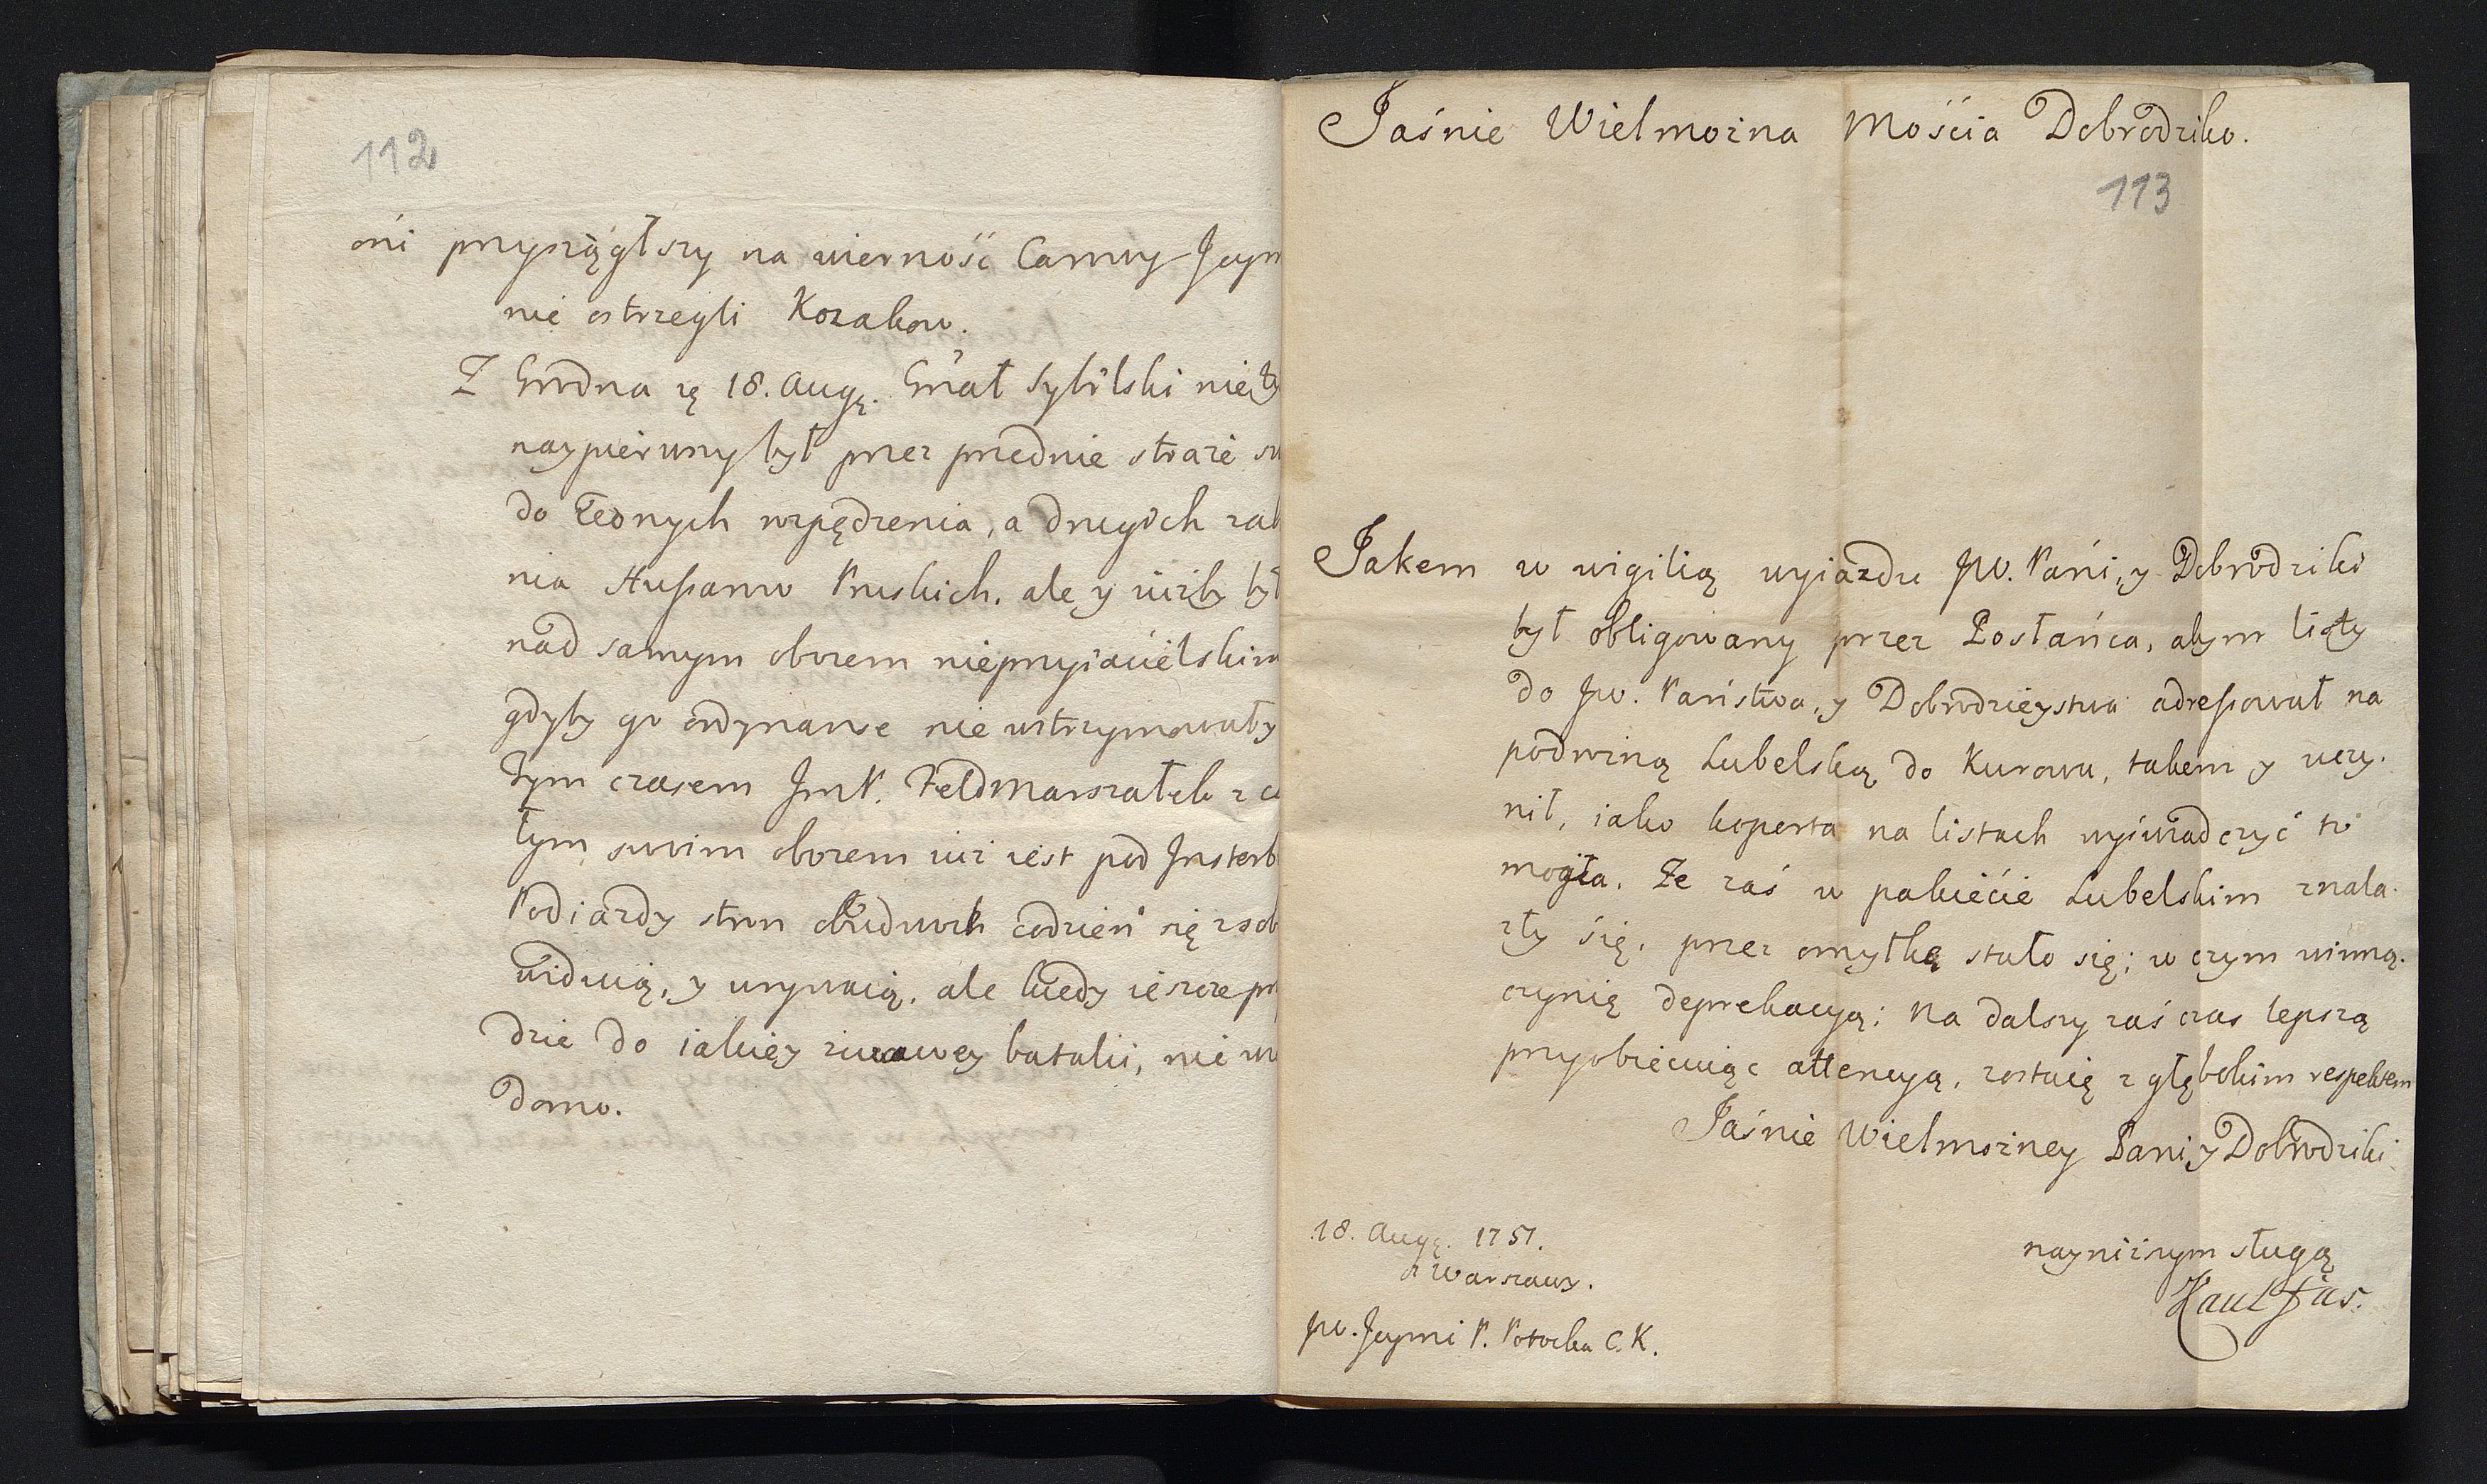 112
oni przysiągłszy na wierność Carowy Jeym
nie ostrzegli Kozakow.
Z Grodna 18. Aug. Gnał Sybilski nie
naypierwszy był przez przednie straże
do iednych wzpędzenia, a drugich zab
nia Hussarow Pruskich, ale y iużby by
nad samym obozem nieprzyiacielskim
gdyby go ordynanse nie wstrzymowały
Tym czasem JmP. FeldMarszałek z ca
łym swoim obozem iuż iest pod Insterb
Podiazdy stron obudwoch codzień się z sob
widuią, y urywaią, ale kiedy ieszcze prz
dzie do iakiey batalii, nie wi
domo.
Jaśnie Wielmożna Mościa Dobrodziko.
113
Jakem w wigilią wyiazdu JW. Pani, y Dobrodziki
był obligowany przez Posłańca, abym listy
do JW. Państwa, y Dobrodzieystwa adressował na
podwiną Lubelską do Kurowa, takem y uczy-
nił, iako koperta na listach wyświadczyć to
mogła. Że zaś w pakiecie Lubelskim znala-
zły się, przez omyłkę stało się; w czym winną
czynię deprekacyą; na dalszy zaś czas lepszą
przyobiecuiąc attencyą, zostaię z głębokim respektem
Jaśnie Wielmożney Pani, y Dobrodziki
nayniższym sługą
18. Aug. 1757.
z Warszawy.
JW. Jeymi P. Potocka C. K.